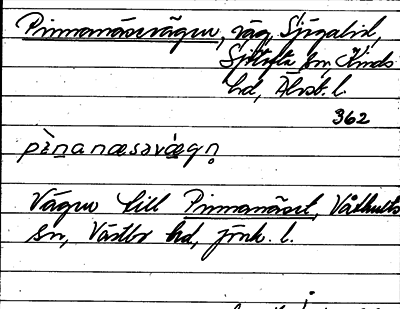 Pinnanäsevägen, väg, Sjögalid,
Sjötofta sn, Kinds
hd, Älvsb. l.
362
pènanæsəvǽgn̥
Vägen till Pinnanäset, Våthults
sn, Västbo hd, jönk. l.